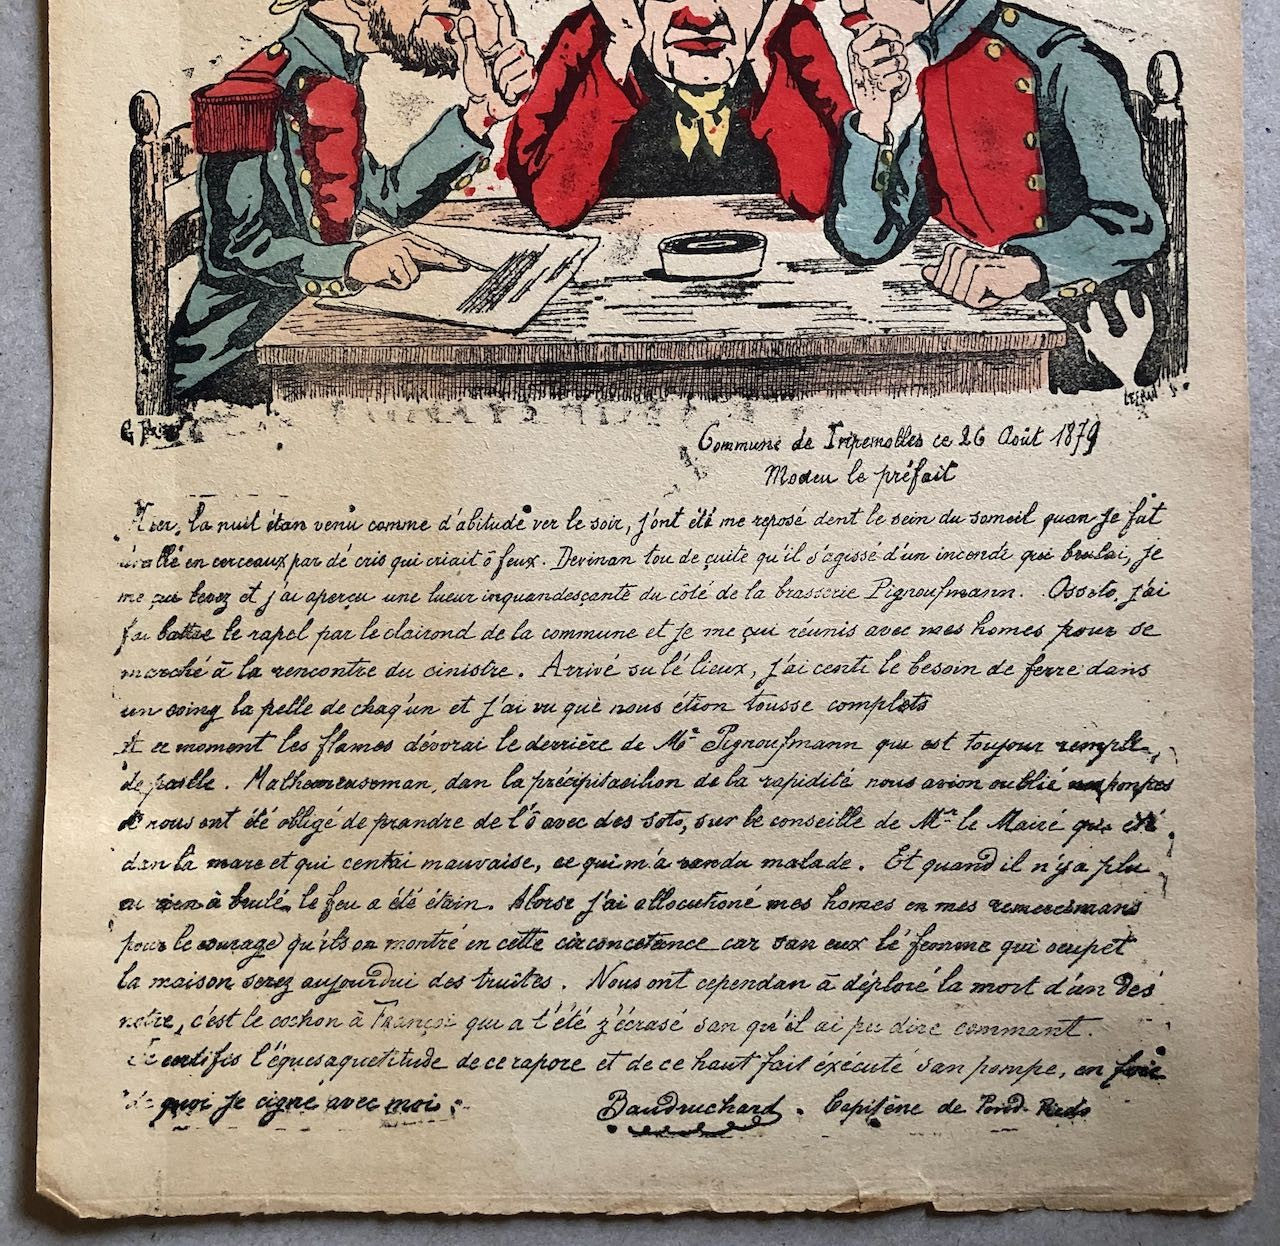 Commune de Tripemolles ce 26 Août 1879
Mosieu le préfait
Hier, la nuit étan venu comme d'abitude ver le soir, j'ont été me reposé dent le sein du someil quan je fut
en cerceaux par dé cris qui criait ô feux. Devinan tou de çuite qu'il s'agissé d'un incende qui brulai, je
me çui levez et j'ai aperçu une lueur inquandesçante du côté de la brasserie Pignoufmann. Ossoto, j'ai
fai battre le rapel par le clairond de la commune et je me çui réunis avec mes homes pour se
marché à la rencontre du cinistre. Arrivé su lé lieux, j'ai centi le besoin de ferre dans
un coing la pelle de chaq'un et j'ai vu que nous étion tousse complets
A ce moment les flames dévorai le derrière de Mr Pignoufmann qui est toujour remplt
de paille. Malheureuseman, dan la précipitacilion de la rapidité nous avion oublié nos pompes
et nous ont été obligé de prandre de l'ô avec des sots, sur le conseille de Mr le Mairé qui été
dan la mare et qui centai mauvaise, ce qui m'a randu malade. Et quand il n'y a plu
eu rien à brulé le feu a été étein. Alorse j'ai allocutioné mes homes en mes remercimans
pour le courage qu'ils on montré en cette circoncetance car san eux lé femme qui ocupet
la maison serez aujourdui des truites. Nous ont cependan à déploré la mort d'un des
notre, c'est le cochon à Françoi qui a t'été z'écrasé san qu'il ai pu dire commant.
Je certifis l'équesaquetitude de ce rapore et de ce haut fait éxécuté san pompe, en foie
de quoi je cigne avec moi.
Baudruchard. Capitène de Pond-Pieds